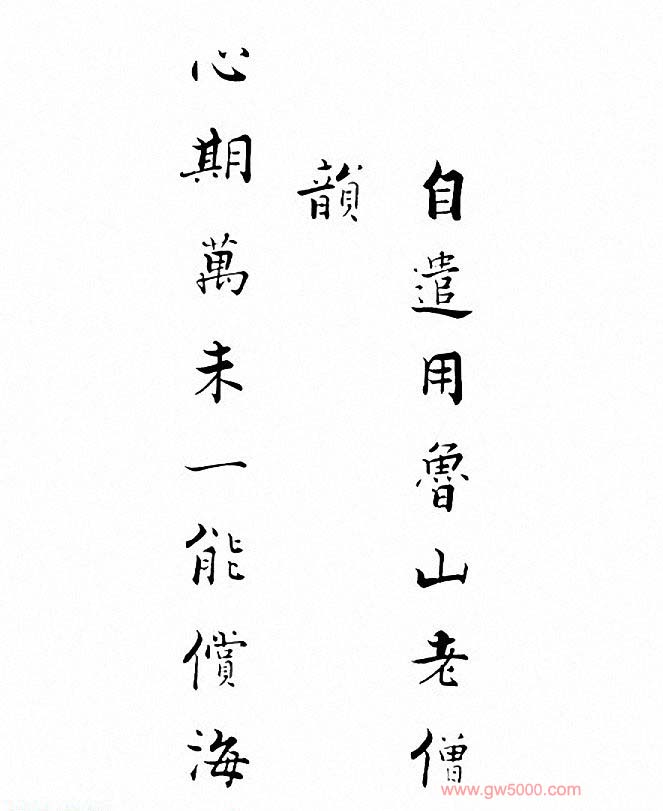 自遣用魯山老僧
韻
心期萬未一能償海
www.gw5000.com